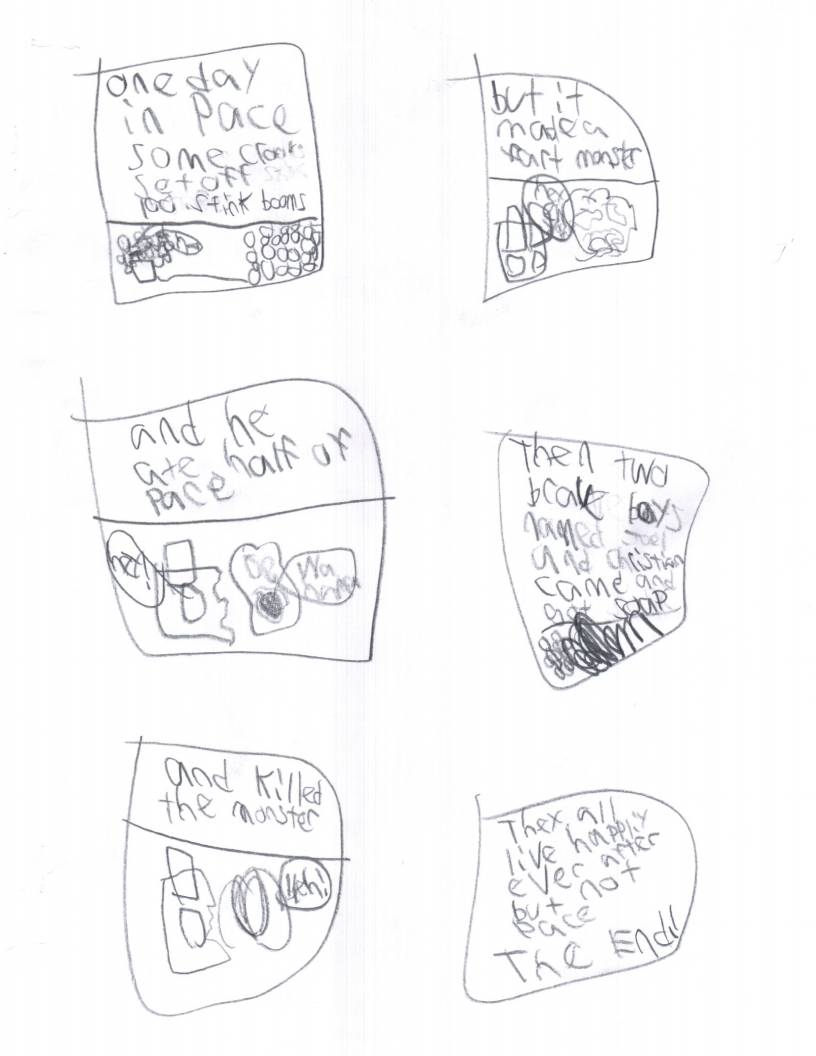 one day
in Pace
some
set off
100 stink booms
but it
made a
fart monster
hey
and he
ate half of
Pace
hey!
Wa
Then two
brave boys
named Joel
and christian
came and
got soap
and killed
the monster
They all
live happliy
ever after
but not
pace
The End!!